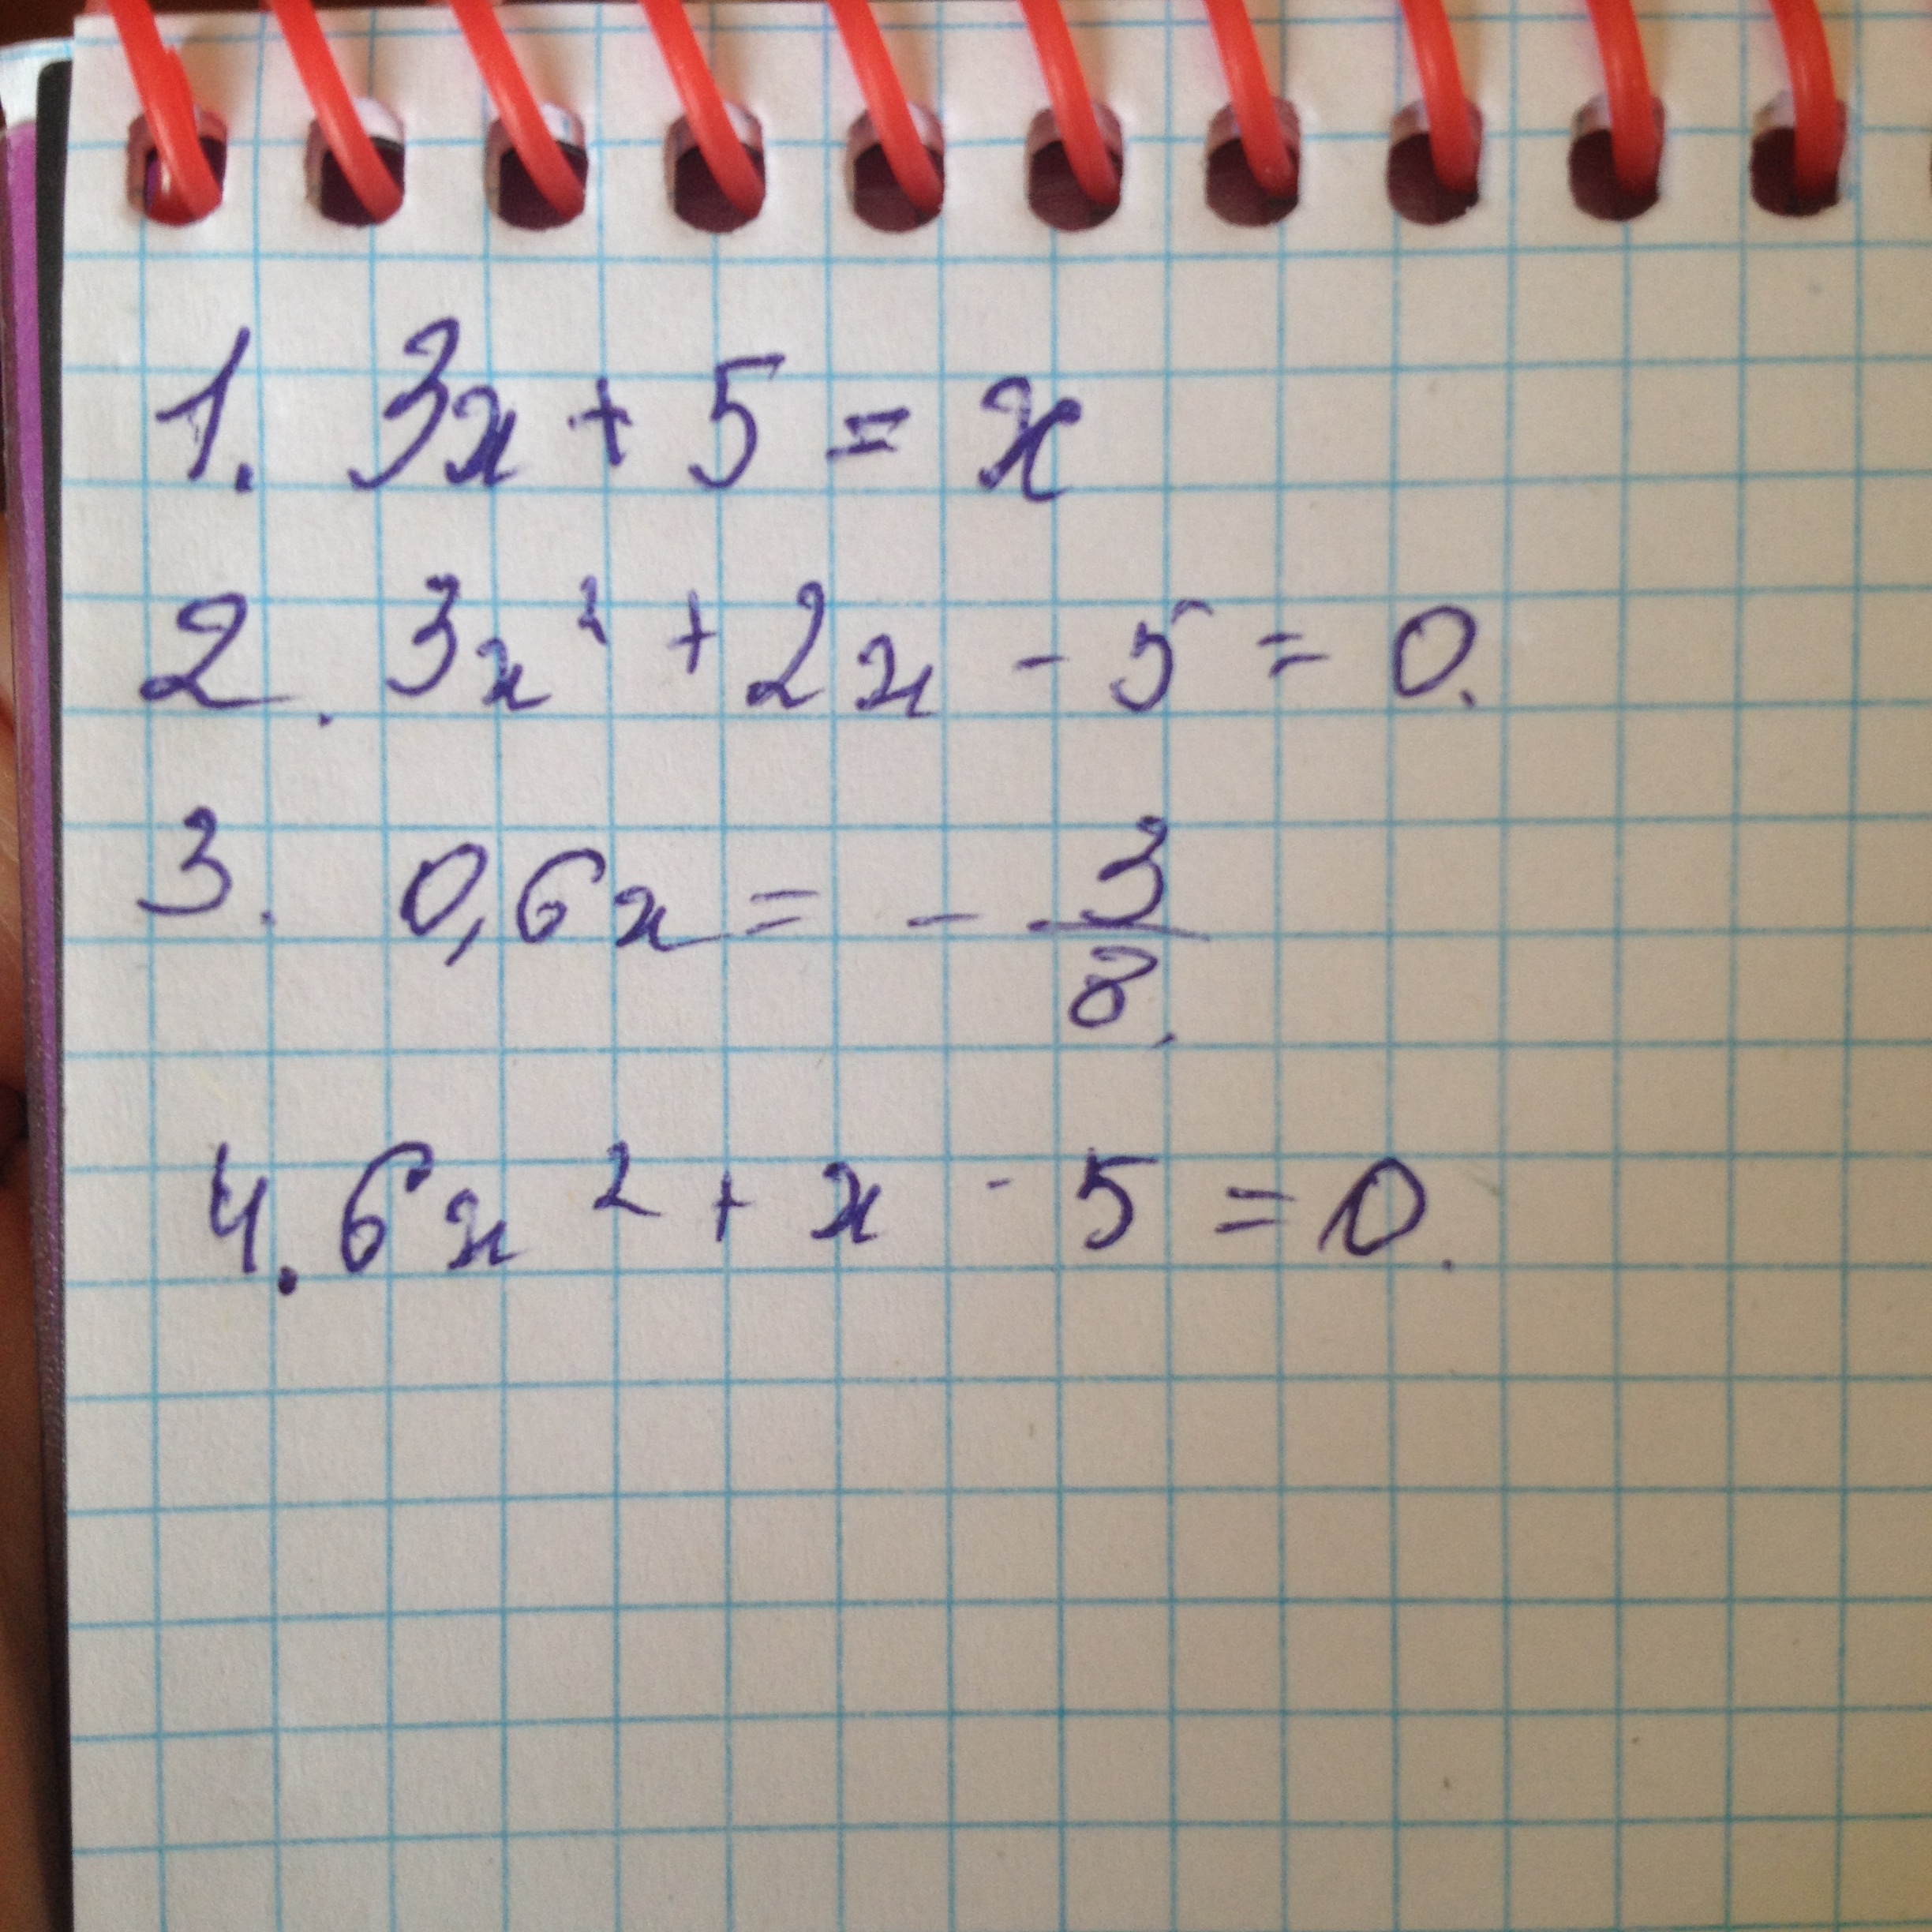 1. 3x + 5 = x
2. 3x² + 2x - 5 = 0.
3. 0,6x = - 3/8.
4. 6x² + x - 5 = 0.